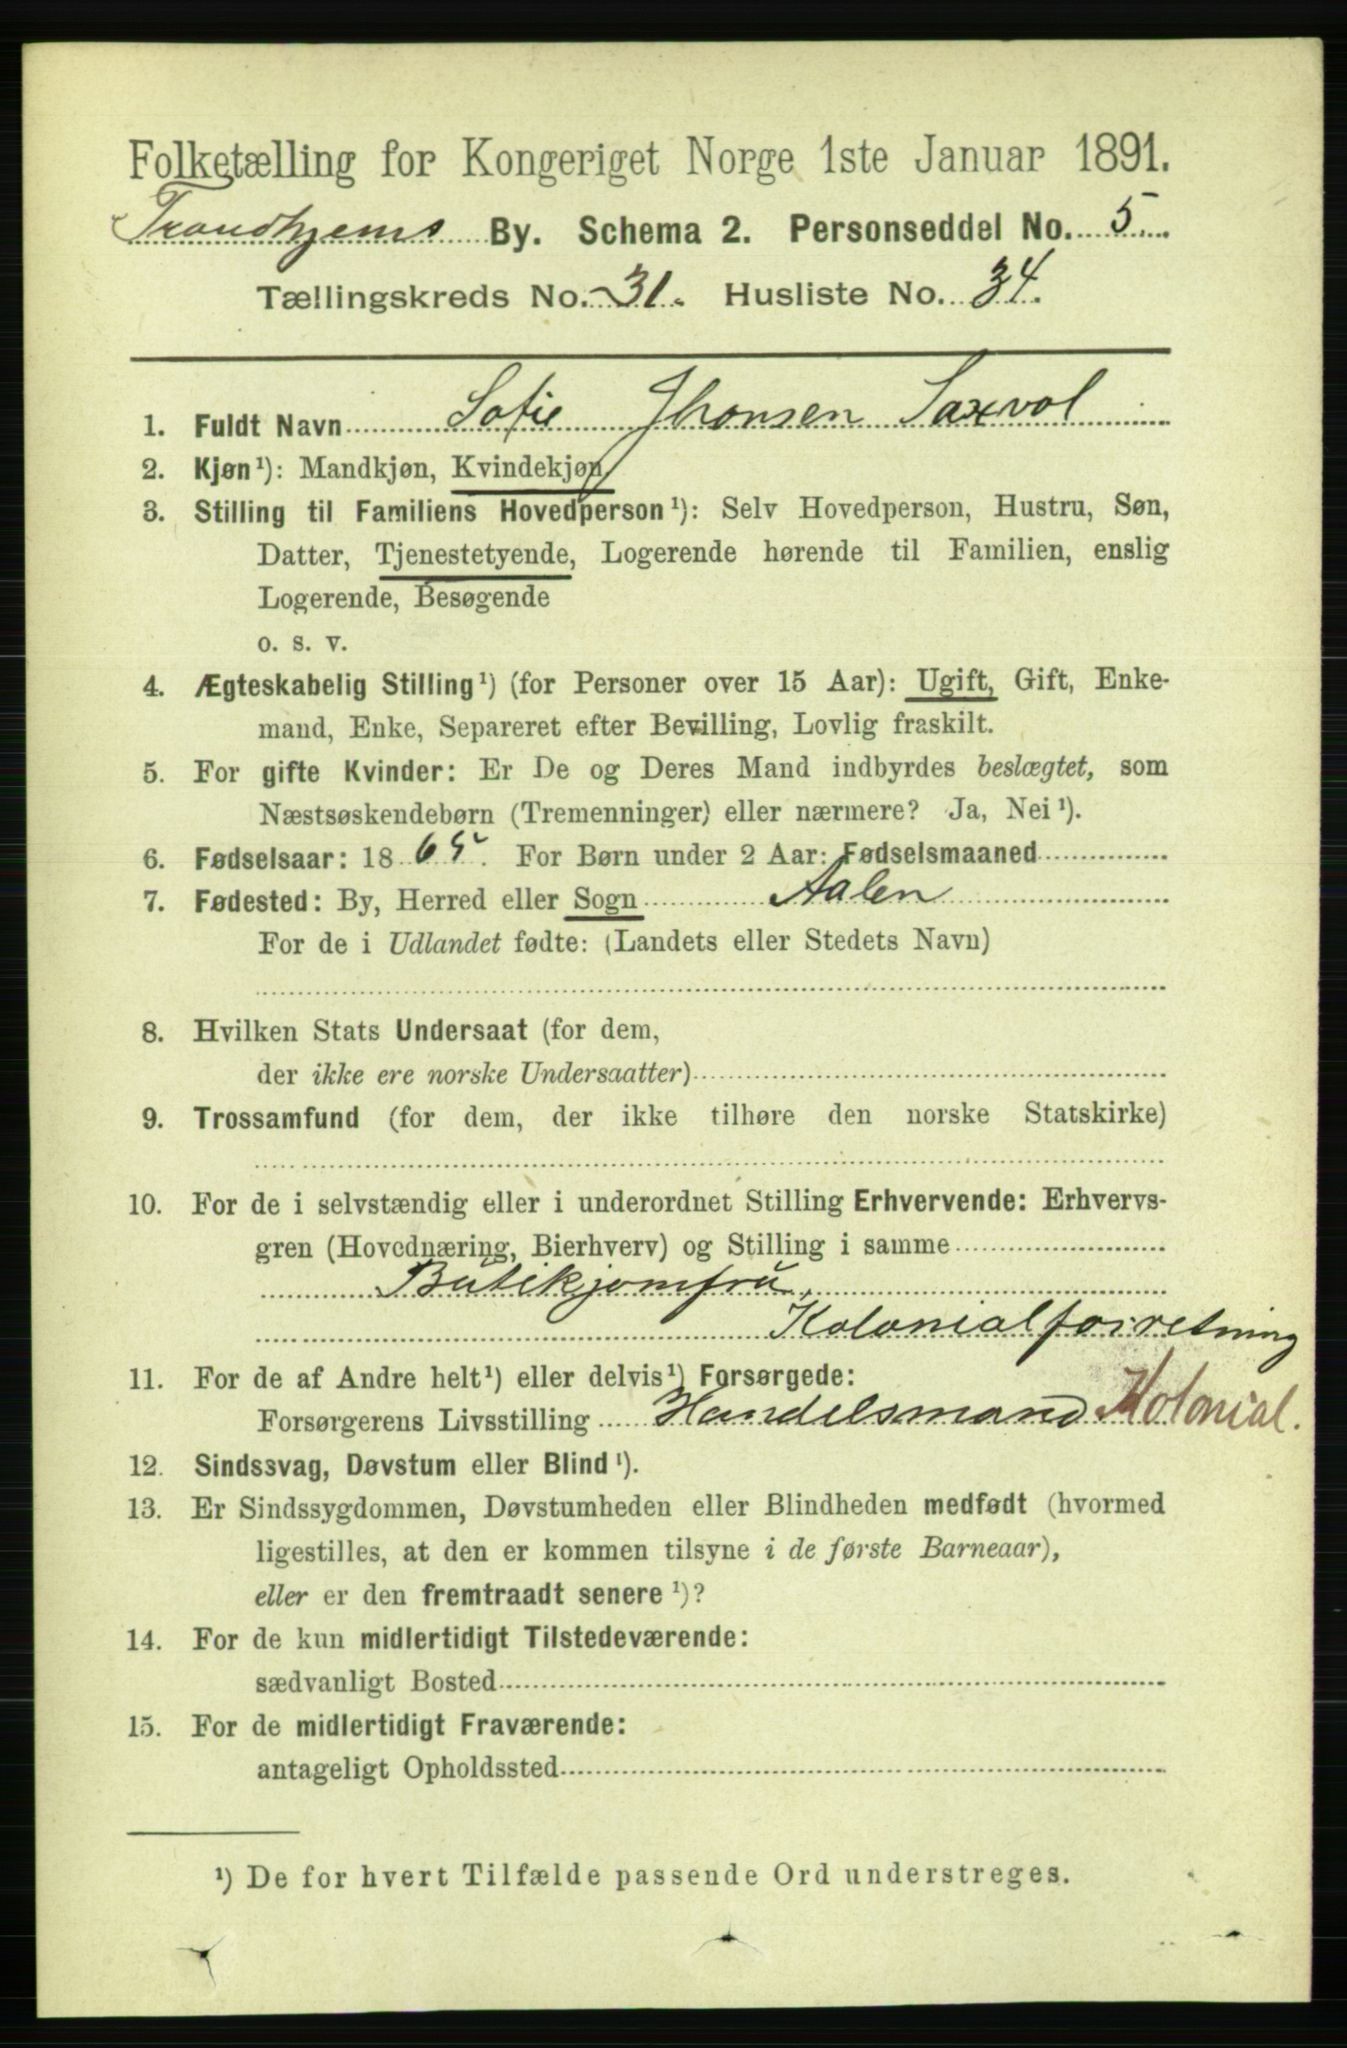 Folketælling for Kongeriget Norge 1ste Januar 1891.
Trondhjems By. Schema 2. Personseddel No. 5
Tællingskreds No. 31. Husliste No. 34.
1. Fuldt Navn Sofie Jhonsen Saxvol
2. Kjøn¹): Mandkjøn, Kvindekjøn
3. Stilling til Familiens Hovedperson¹): Selv Hovedperson, Hustru, Søn,
Datter, Tjenestetyende, Logerende hørende til Familien, enslig
Logerende, Besøgende
o. s. v.
4. Ægteskabelig Stilling¹) (for Personer over 15 Aar): Ugift, Gift, Enke-
mand, Enke, Separeret efter Bevilling, Lovlig fraskilt.
5. For gifte Kvinder: Er De og Deres Mand indbyrdes beslægtet, som
Næstsøskendebørn (Tremenninger) eller nærmere? Ja, Nei¹).
6. Fødselsaar: 1865. For Børn under 2 Aar: Fødselsmaaned
7. Fødested: By, Herred eller Sogn Aalen
For de i Udlandet fødte: (Landets eller Stedets Navn)
8. Hvilken Stats Undersaat (for dem,
der ikke ere norske Undersaatter)
9. Trossamfund (for dem, der ikke tilhøre den norske Statskirke)
10. For de i selvstændig eller i underordnet Stilling Erhvervende: Erhvervs-
gren (Hovednæring, Bierhverv) og Stilling i samme
Butikjomfru,
Kolonialforretning
11. For de af Andre helt¹) eller delvis¹) Forsørgede:
Forsørgerens Livsstilling Handelsmand Kolonial.
12. Sindssvag, Døvstum eller Blind¹).
13. Er Sindssygdommen, Døvstumheden eller Blindheden medfødt (hvormed
ligestilles, at den er kommen tilsyne i de første Barneaar),
eller er den fremtraadt senere¹)?
14. For de kun midlertidigt Tilstedeværende:
sædvanligt Bosted
15. For de midlertidigt Fraværende:
antageligt Opholdssted
¹) De for hvert Tilfælde passende Ord understreges.